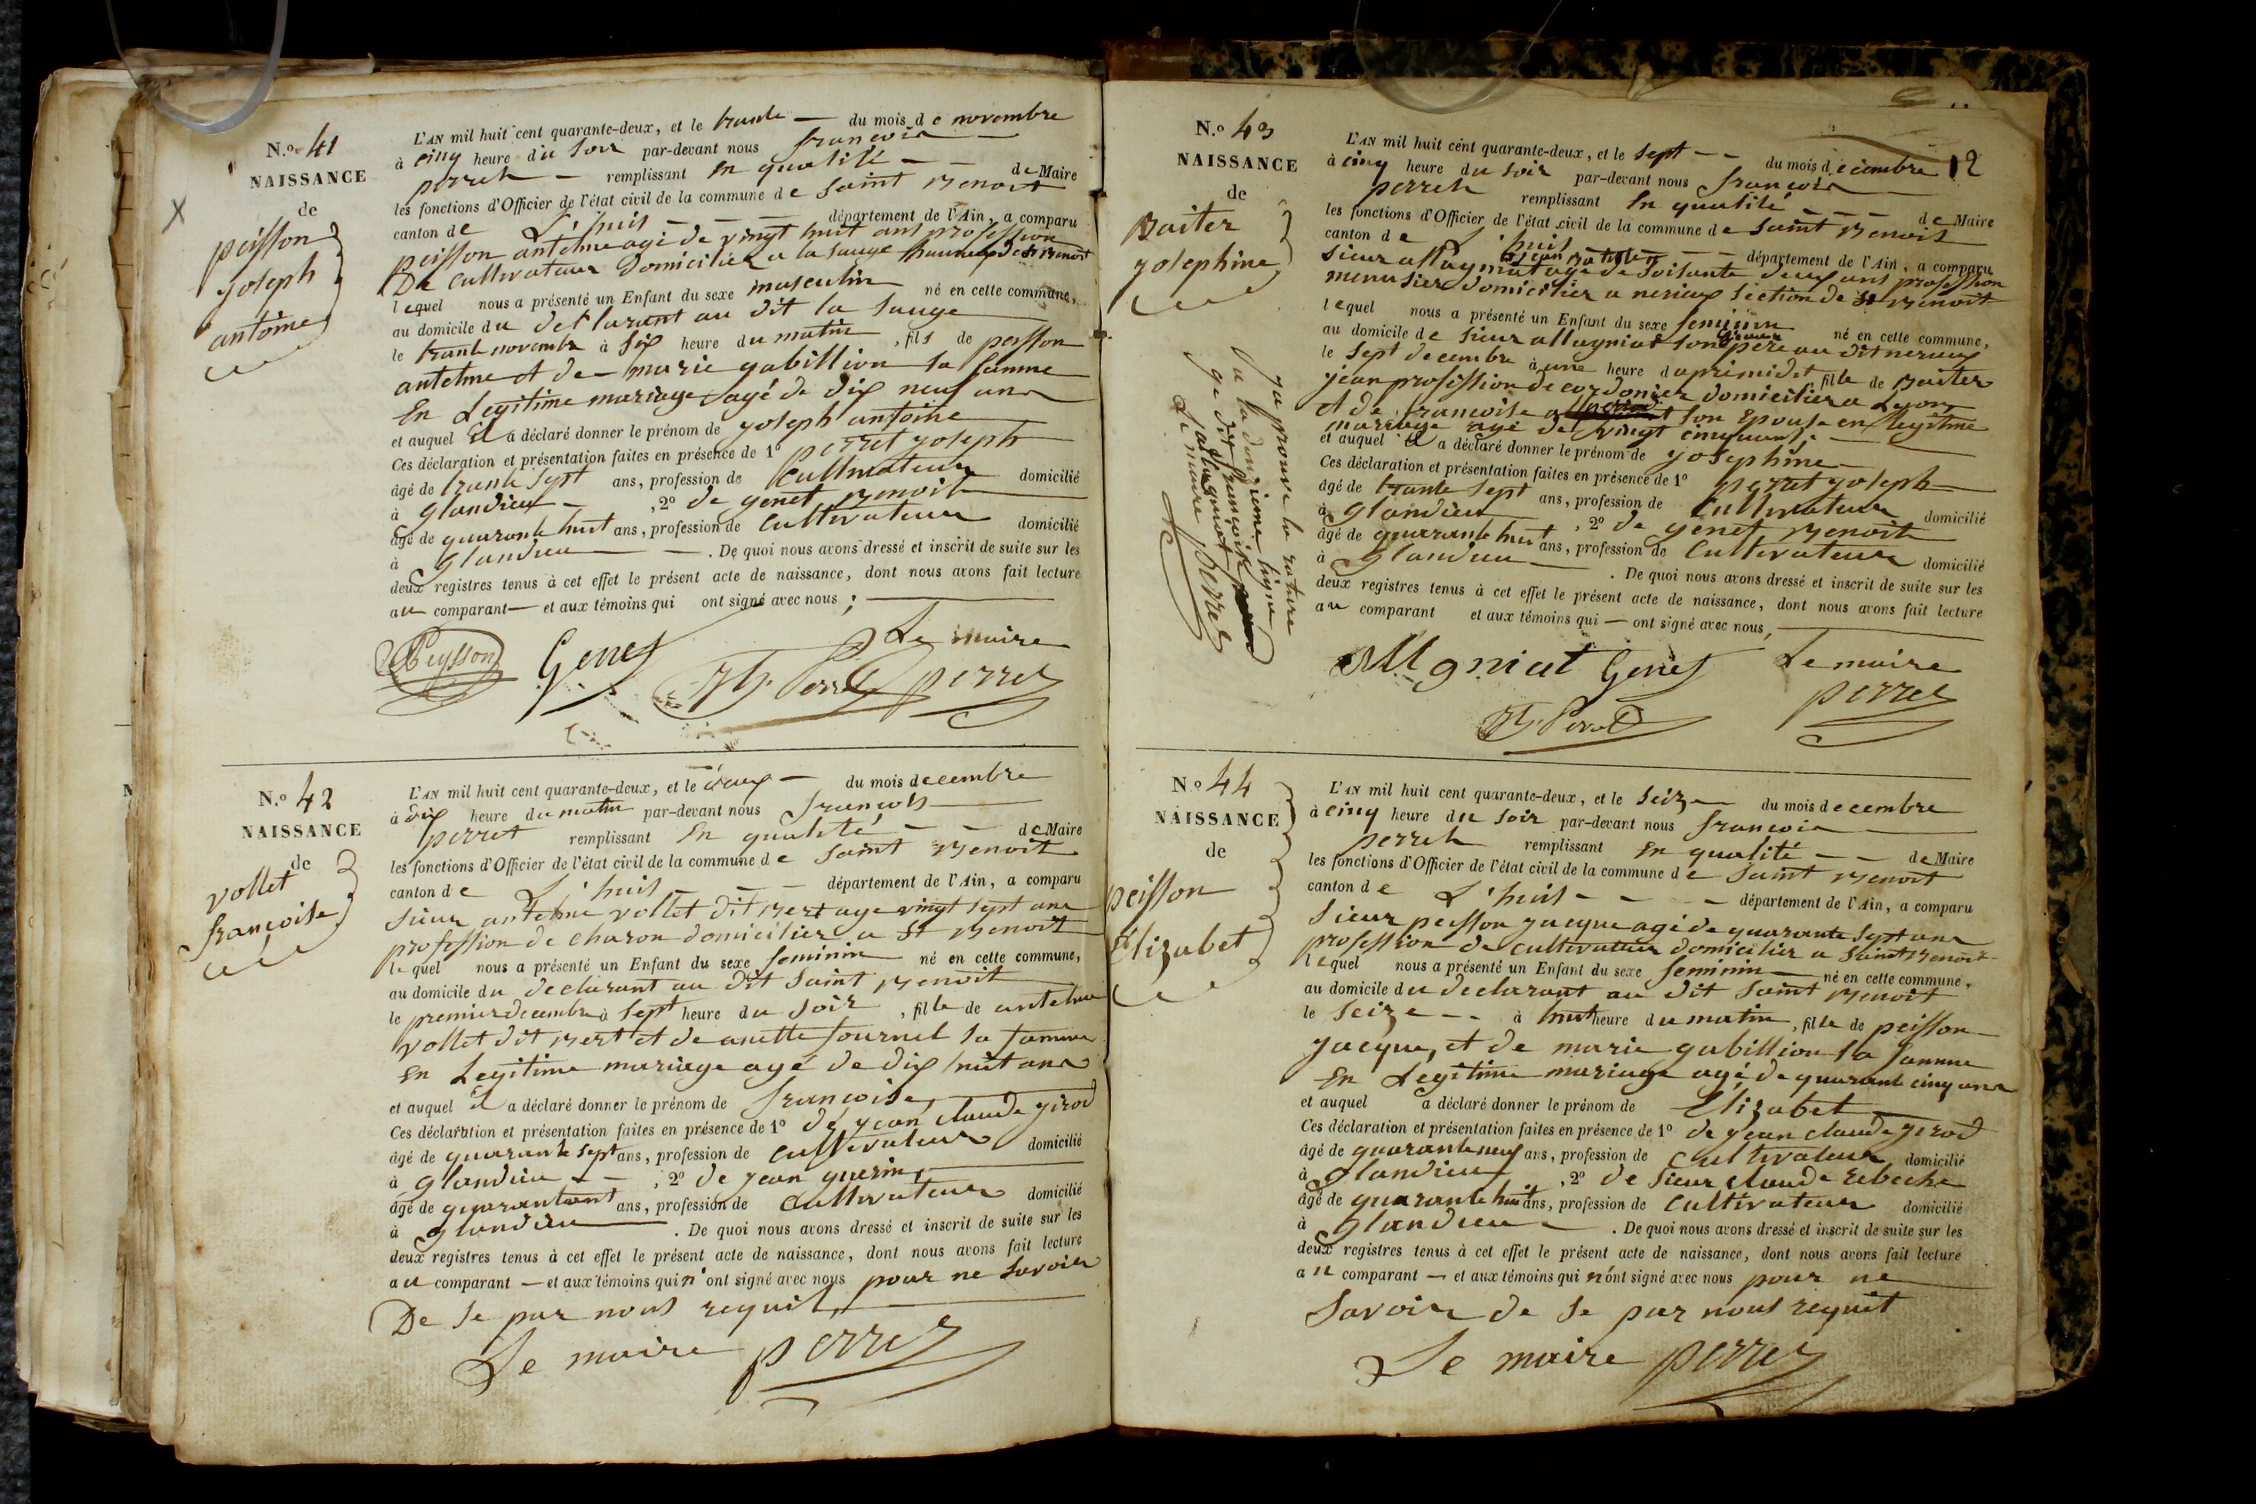 N.º 41
NAISSANCE
de
peisson
yoseph
antoine
L'AN mil huit cent quarante-deux, et le trante — du mois de novembre
à cinq heure du soir par-devant nous françois
perret — remplissant en qualité — — de Maire
les fonctions d'Officier de l'état civil de la commune de saint Benoit
canton de L'huis — — — département de l'Ain, a comparu
peisson antelme agé de vingt huit ans profession
De cultivateur Domicilier a la sauge hameau de st Benoit
lequel nous a présenté un Enfant du sexe masculin né en cette commune,
au domicile du declarant au dit la sauge
le trante novembre à six heure du matin, fils de peisson
antelme et de marie gabillion sa famme
En Legitime mariage agé de dix neuf ans
et auquel il a déclaré donner le prénom de yoseph antoine
Ces déclaration et présentation faites en présence de 1º perret yoseph
âgé de trante sept ans, profession de cultivateur domicilié
à glandieu —, 2º de genet Benoit
âgé de quarante huit ans, profession de cultivateur domicilié
à glandieu — . De quoi nous avons dressé et inscrit de suite sur les
deux registres tenus à cet effet le présent acte de naissance, dont nous avons fait lecture
au comparant — et aux témoins qui ont signé avec nous ;
Peysson Genet Jh. Perret Le maire
perret
N.º 42
NAISSANCE
de
vollet
françoise
L'AN mil huit cent quarante-deux, et le deux — du mois decembre
à dix heure du matin par-devant nous françois
perret remplissant En qualité — — de Maire
les fonctions d'Officier de l'état civil de la commune de saint Benoit
canton de L'huis — — — département de l'Ain, a comparu
sieur antelme vollet dit Bert age vingt sept ans
profession de charon domicilier a St Benoit
lequel nous a présenté un Enfant du sexe feminin né en cette commune,
au domicile du declarant au dit saint Benoit
le premier decembre à sept heure du soir, fille de antelme
vollet dit Bert et de anette fournel sa famme
En Legitime mariage agé de dix huit ans
et auquel il a déclaré donner le prénom de françoise
Ces déclaration et présentation faites en présence de 1º de yean claude girod
âgé de quarante sept ans, profession de cultivateur domicilié
à glandieu — —, 2º de yean guerin
âgé de ans, profession de cultivateur domicilié
à glandieu . De quoi nous avons dressé et inscrit de suite sur les
deux registres tenus à cet effet le présent acte de naissance, dont nous avons fait lecture
au comparant — et aux témoins qui n'ont signé avec nous pour ne savoir
De se par nous requit
Le maire perret
12
N.º 43
NAISSANCE
de
Baiter
yosephine
ya prouve la rature
a la douzieme ligne
ge dit françoise
allagniat
Le maire perret
L'AN mil huit cent quarante-deux, et le sept — — du mois decembre
à cinq heure du soir par-devant nous françois
perret remplissant En qualité — — — de Maire
les fonctions d'Officier de l'état civil de la commune de saint Benoit
canton de L'huis — — département de l'Ain, a comparu
sieur allagniat agé de soisante deux ans profession
menusier domicilier a nerieux section de st Benoit
lequel nous a présenté un Enfant du sexe feminin né en cette commune,
au domicile de sieur allagniat son grand père au dit nerieux
le sept decembre à une heure daprèsmidi, fille de Baiter
jean profession de cordonier domicilier a Lyon
et de françoise son Epouse en legitime
mariage agé de vingt cinq ans ;
et auquel il a déclaré donner le prénom de yosephine
Ces déclaration et présentation faites en présence de 1º perret yoseph
âgé de trante sept ans, profession de cultivateur domicilié
à glandieu, 2º de genet Benoit
âgé de quarante huit ans, profession de cultivateur domicilié
à glandieu — . De quoi nous avons dressé et inscrit de suite sur les
deux registres tenus à cet effet le présent acte de naissance, dont nous avons fait lecture
au comparant et aux témoins qui — ont signé avec nous,
Genet Le maire
Jh. Perret perret
N.º 44
NAISSANCE
de
peisson
Elizabet
L'AN mil huit cent quarante-deux, et le seize du mois decembre
à cinq heure du soir par-devant nous françois
perret remplissant en qualité — — de Maire
les fonctions d'Officier de l'état civil de la commune de saint Benoit
canton de L'huis — — — département de l'Ain, a comparu
sieur peisson yacque agé de quarante sept ans
profession de cultivateur domicilier a saint Benoit
lequel nous a présenté un Enfant du sexe feminin né en cette commune,
au domicile du declarant au dit saint Benoit
le seize — — à huit heure du matin, fille de peisson
yacque, et de marie gabillion sa famme
En Legitime mariage agé de quarante cinq ans
et auquel a déclaré donner le prénom de Elizabet
Ces déclaration et présentation faites en présence de 1º de yean claude girod
âgé de quarante neuf ans, profession de cultivateur domicilié
à glandieu, 2º de sieur claude rebeche
âgé de quarante huit ans, profession de cultivateur domicilié
à glandieu — . De quoi nous avons dressé et inscrit de suite sur les
deux registres tenus à cet effet le présent acte de naissance, dont nous avons fait lecture
au comparant — et aux témoins qui n'ont signé avec nous pour ne
savoir de se par nous requit
Le maire perret